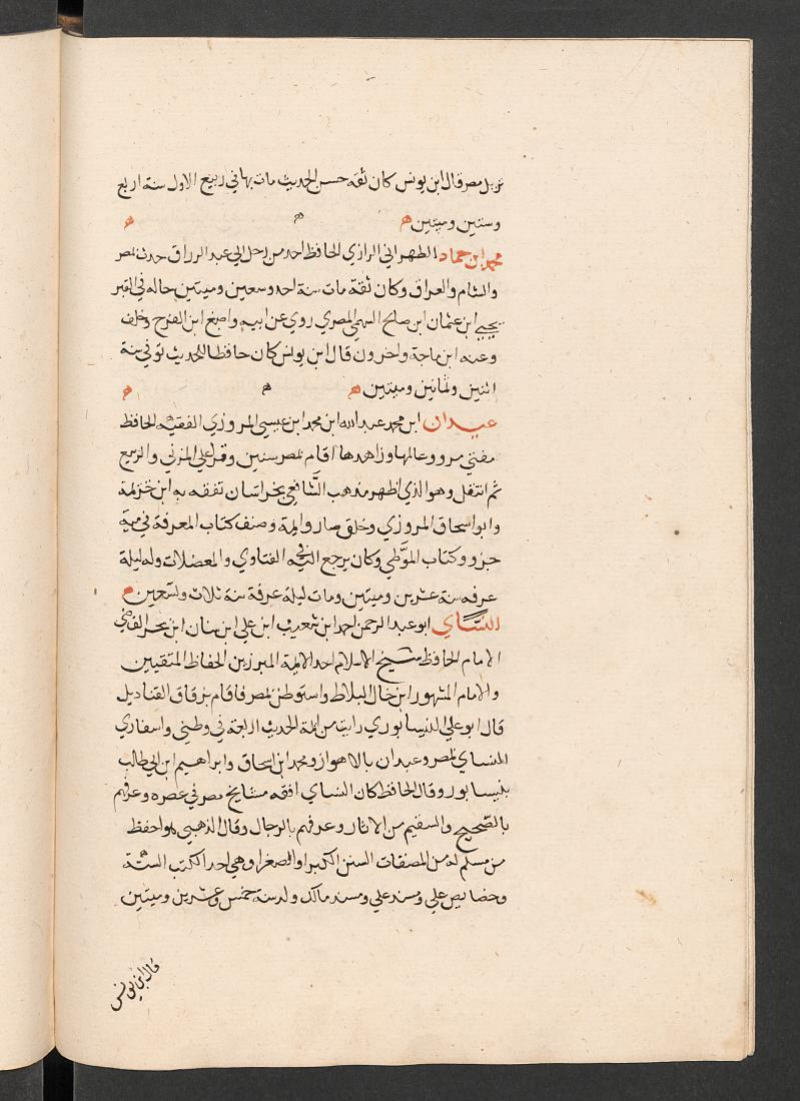 نزيل مصر قال ابن يونس كان ثقه حسن الحديث مات بها في ربيع الاول سنة اربع
وستين وميتين ه ه ه
محمد ابن حماد الطهراني الرازي الحافظ احد من رحل الى عبد الرزاق حدث بمصر
والشام والعراق وكان ثقة مات سنة احد وسبعين وميتين حاله في القبر
يحيي ابن عثمان ابن صالح السهمي المصري روي عن ابيه واصبغ ابن الفرج وخلف
وعنه ابن ماجة واخرون قال ابن يونس كان حافظا للحديث توفي سنة
اثنين وثمانين وميتين ه ه ه
عبدان ابن محمد عبد الله ابن محمد ابن عيسي المروزي الفقيه الحافظ
مفتي مرو وعالمها وزاهدها اقام بمصر سنين وقرا علي المزني والربيع
ثم انتقل وهو الذي اظهر مذهب الشافعي بخراسان تفقه به ابن خزيمة
وابو اسحاق المروزي وخلق صاروا ايمة وصنف كتاب المعرفة في مية
جزو وكتاب الموطي وكان يرجع اليه في الفتاوي والمعضلات ولد ليلة
عرفه سنة عشرين وميتين ومات ليلة عرفة سنة ثلاث وتسعين ه
النساي ابو عبد الرحمن احمد ابن شعيب ابن علي ابن سنان ابن بحر القاضي
الامام الحافظ شيخ الاسلام احد الايمة المبرزين الحفاظ المتقيين
والامام المشهور ابن خال البلاط واستوطن بمصر فاقام بزقاق القناديل
قال ابو علي النيسابوري رايت من ايمة الحديث اربعة في وطني واسفاري
النساي بمصر وعبدان بالاهواز ومحمد ابن اسحاق وابراهيم ابن ابي طالب
بنيسابور وقال الحافظ كان النساي افقه مشايخ مصر في عصره وعرفهم
بالصحيح والسقيم من الاثار وعرفهم بالرجال وقال الذهبي هو احفظ
من مسلم له من المصنفات السنن الكبرا والصغرا وهي احد الكتب الستة
وخصايص علي ومسند علي ومسند مالك ولد سنة خمس وعشرين وميتين
قال ابن يونس